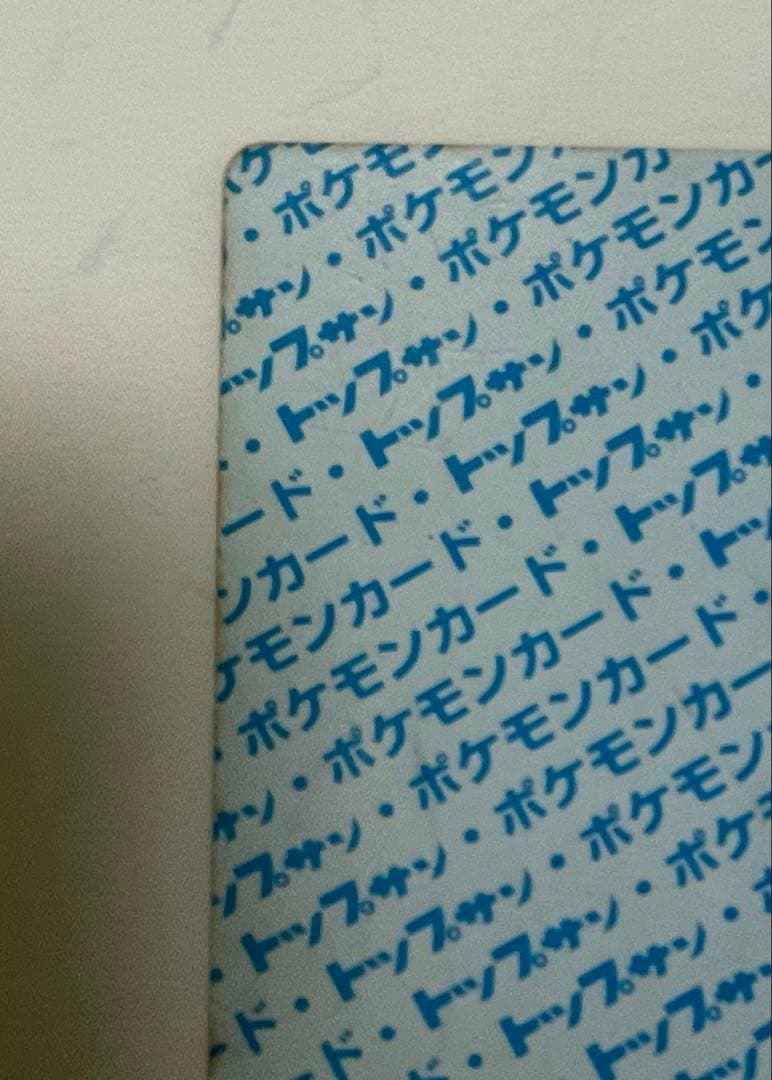 ケモ
・ポケモン
プサン・ポケモン
ップサン・ポケモンカ
・トップサン・ポケモンカー
ード・トップサン・ポケモン
ンカード・トップサン・ポケ
ケモンカード・トップサン・
・ポケモンカード・トップサ
サン・ポケモンカード・トッ
ップサン・ポケモンカード・
・トップサン・ポケモンカー
ド・トップサン・ポケモン
ド・トップサン・ポケ
ド・トップサン・
トップサン
トッ